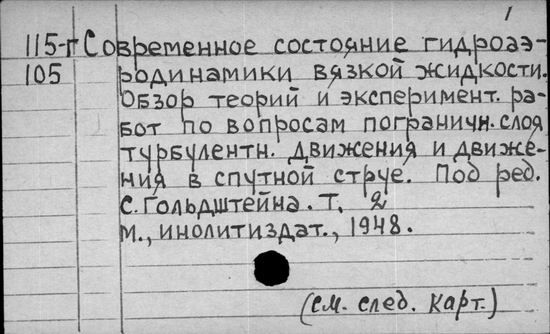 1
115-г Современное состояние гидроаэ-
105 родинамики вязкой жидкости.
Обзор теорий и эксперимент. ра-
бот по вопросам пограничн. слоя
турбулентн. движения и движе-
ния в спутной струе. Под ред.
С. Гольдштейна. Т. 2
М., Инолитиздат., 1948.
(см. след. карт.)